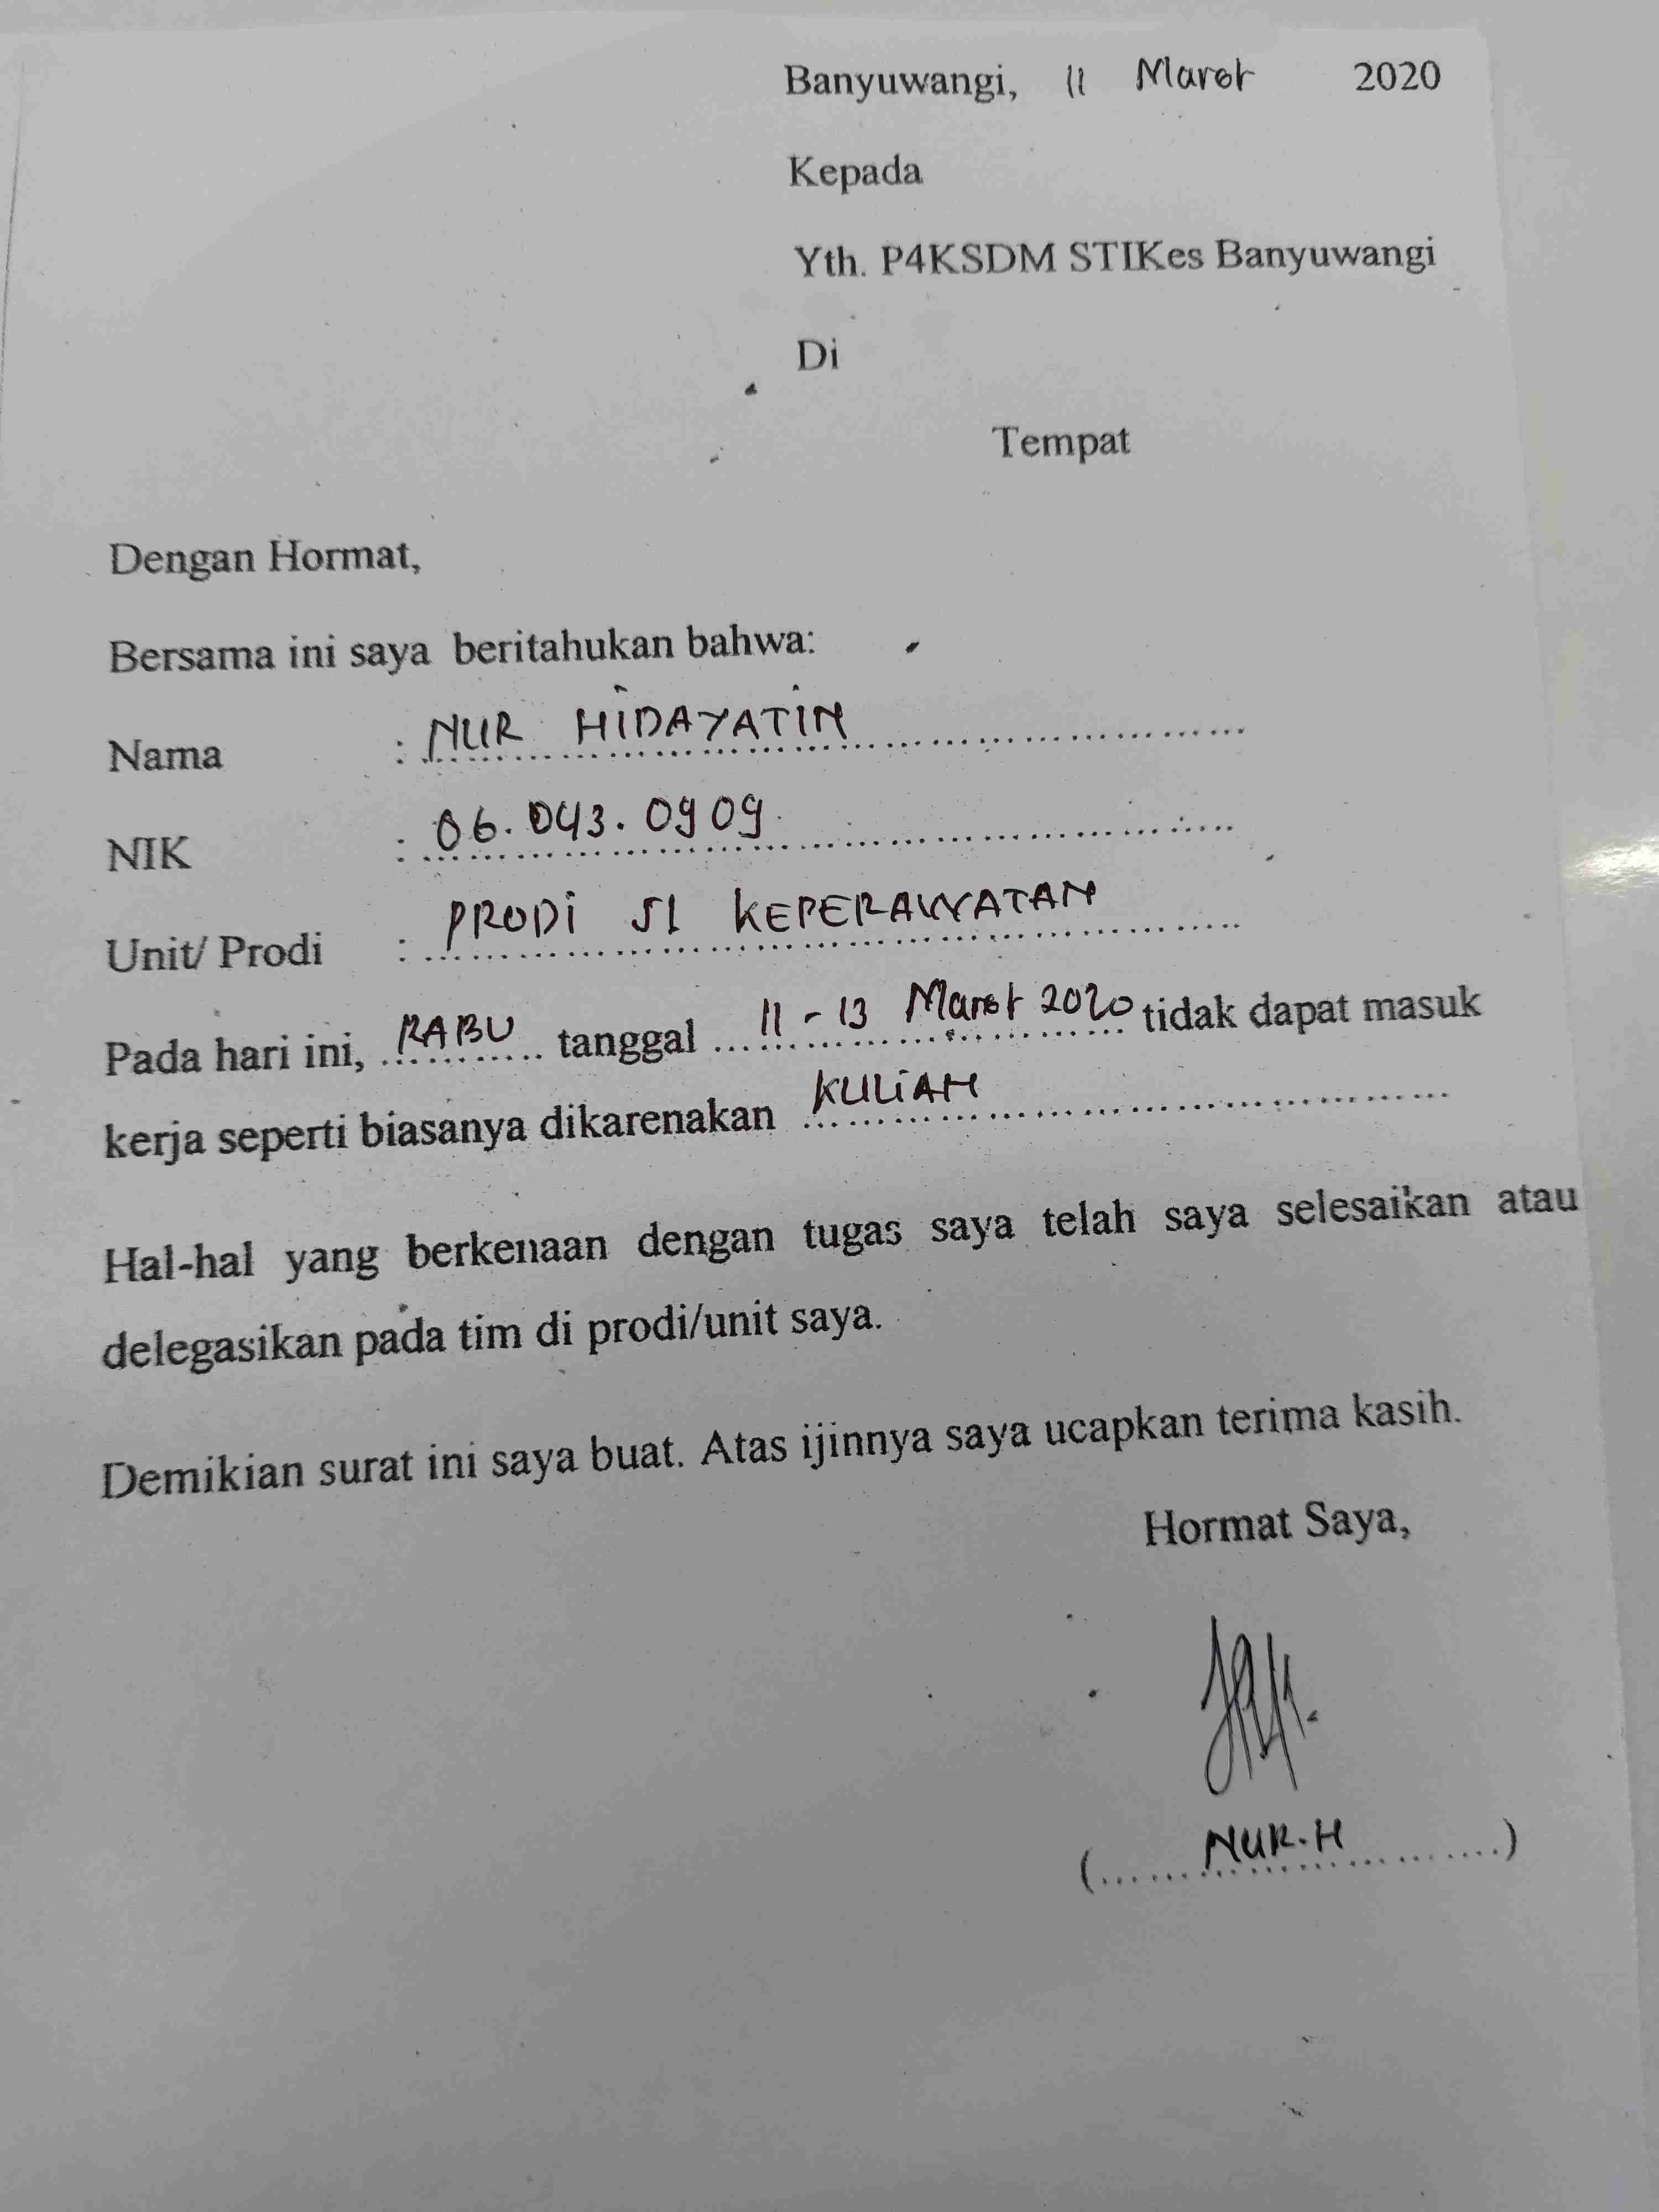 Banyuwangi, 11 Maret 2020
Kepada
Yth. P4KSDM STIKes Banyuwangi
Di
Tempat
Dengan Hormat,
Bersama ini saya beritahukan bahwa:
Nama : NUR HIDAYATIN
NIK : 06.043.0909
Unit/ Prodi : PRODI S1 KEPERAWATAN
Pada hari ini, RABU tanggal 11 - 13 Maret 2020 tidak dapat masuk
kerja seperti biasanya dikarenakan KULIAH
Hal-hal yang berkenaan dengan tugas saya telah saya selesaikan atau
delegasikan pada tim di prodi/unit saya.
Demikian surat ini saya buat. Atas ijinnya saya ucapkan terima kasih.
Hormat Saya,
(NUR.H)